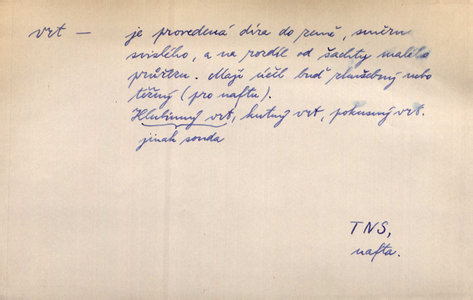 vrt — je provedená díra do země, směru
svislého, a na rozdíl od šachty malého
průřezu. Mají účel buď zkušebný nebo
těžný (pro naftu).
Hlubinný vrt, kutný vrt, pokusný vrt.
jinak sonda
TNS,
nafta.